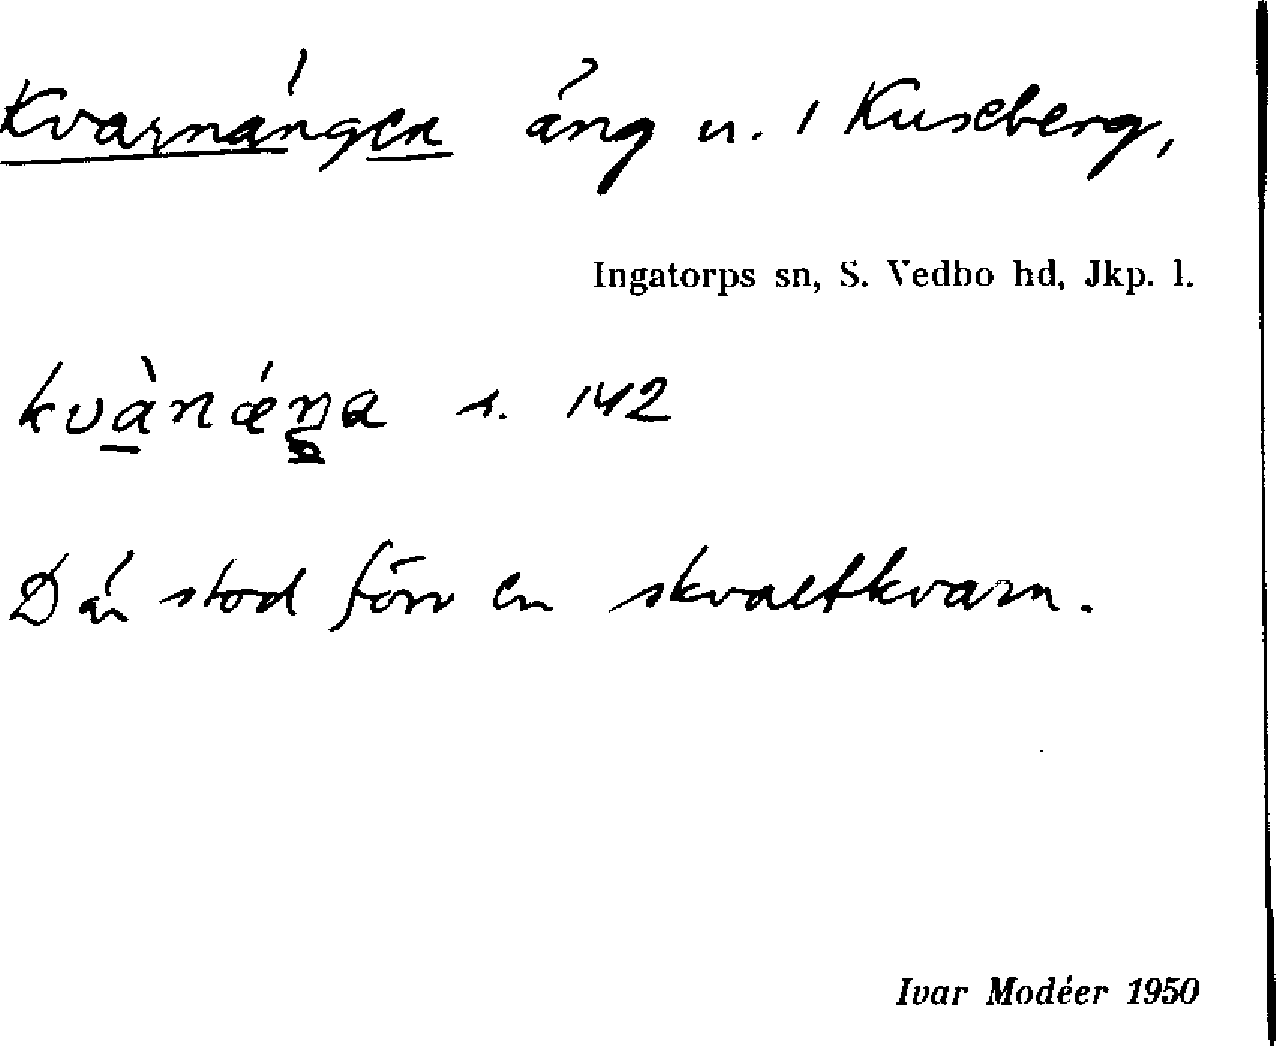 Kvarnängen äng u. / Kuseberg,
Ingatorps sn, S. Vedbo hd, Jkp. l.
kvànǽŋa s. 142
Där stod förr en skvaltkvarn.
Ivar Modéer 1950